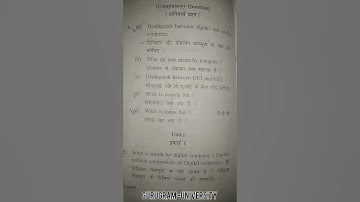 (Compulsory Question)
(अनिवार्य प्रश्न)
1. (a) Distinguish between digital and analog
computer.
डिजिटल और एनालॉग कम्प्यूटर के बीच अंतर
(b) What do you mean by compiler ?
(c) Distinguish Between CUI and GUI
(d) What is recycle bin ?
रिसायकल बिन क्या है ?
(e) What is status bar ?
5×2=10
स्टेटस बार क्या है ?
Unit I
इकाई I
2. What is meant by digital computer ? Explain
various components of Digital computer.
डिजिटल कम्प्यूटर से क्या
GURUGRAM-UNIVERSITY